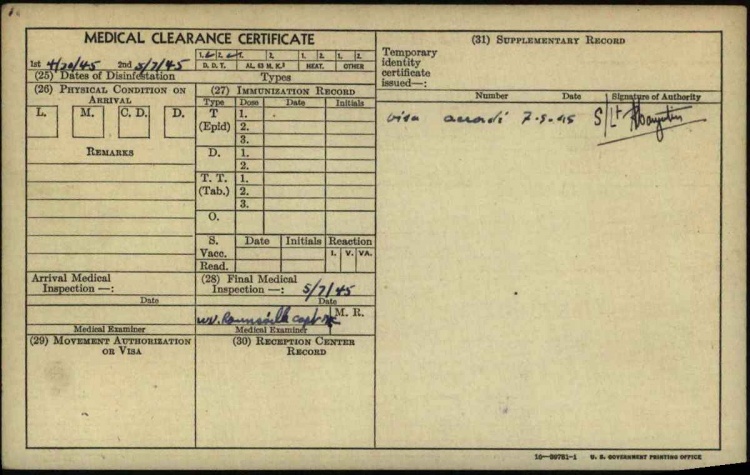 MEDICAL CLEARANCE CERTIFICATE
1st 4/20/45 2nd 5/7/45
1. 2. 1. 2. 1. 2. 1. 2.
D. D. T. AL. 63 M. K.3 HEAT. OTHER
(25) Dates of Disinfestation Types
(26) PHYSICAL CONDITION ON ARRIVAL
L. M. C. D. D.
REMARKS
Arrival Medical
Inspection —:
Date
Medical Examiner
(27) IMMUNIZATION RECORD
Type Dose Date Initials
T 1.
(Epid) 2.
3.
D. 1.
2.
T. T. 1.
(Tab.) 2.
3.
O.
S. Date Initials Reaction
Vacc. I. V. VA.
Read.
(28) Final Medical
Inspection —: 5/7/45
Date
Capt MC M. R.
Medical Examiner
(29) MOVEMENT AUTHORIZATION
OR VISA
(30) RECEPTION CENTER
RECORD
(31) SUPPLEMENTARY RECORD
Temporary
identity
certificate
issued—:
Number Date Signature of Authority
visa 7-5-45 S/Lt
16—39781-1 U. S. GOVERNMENT PRINTING OFFICE